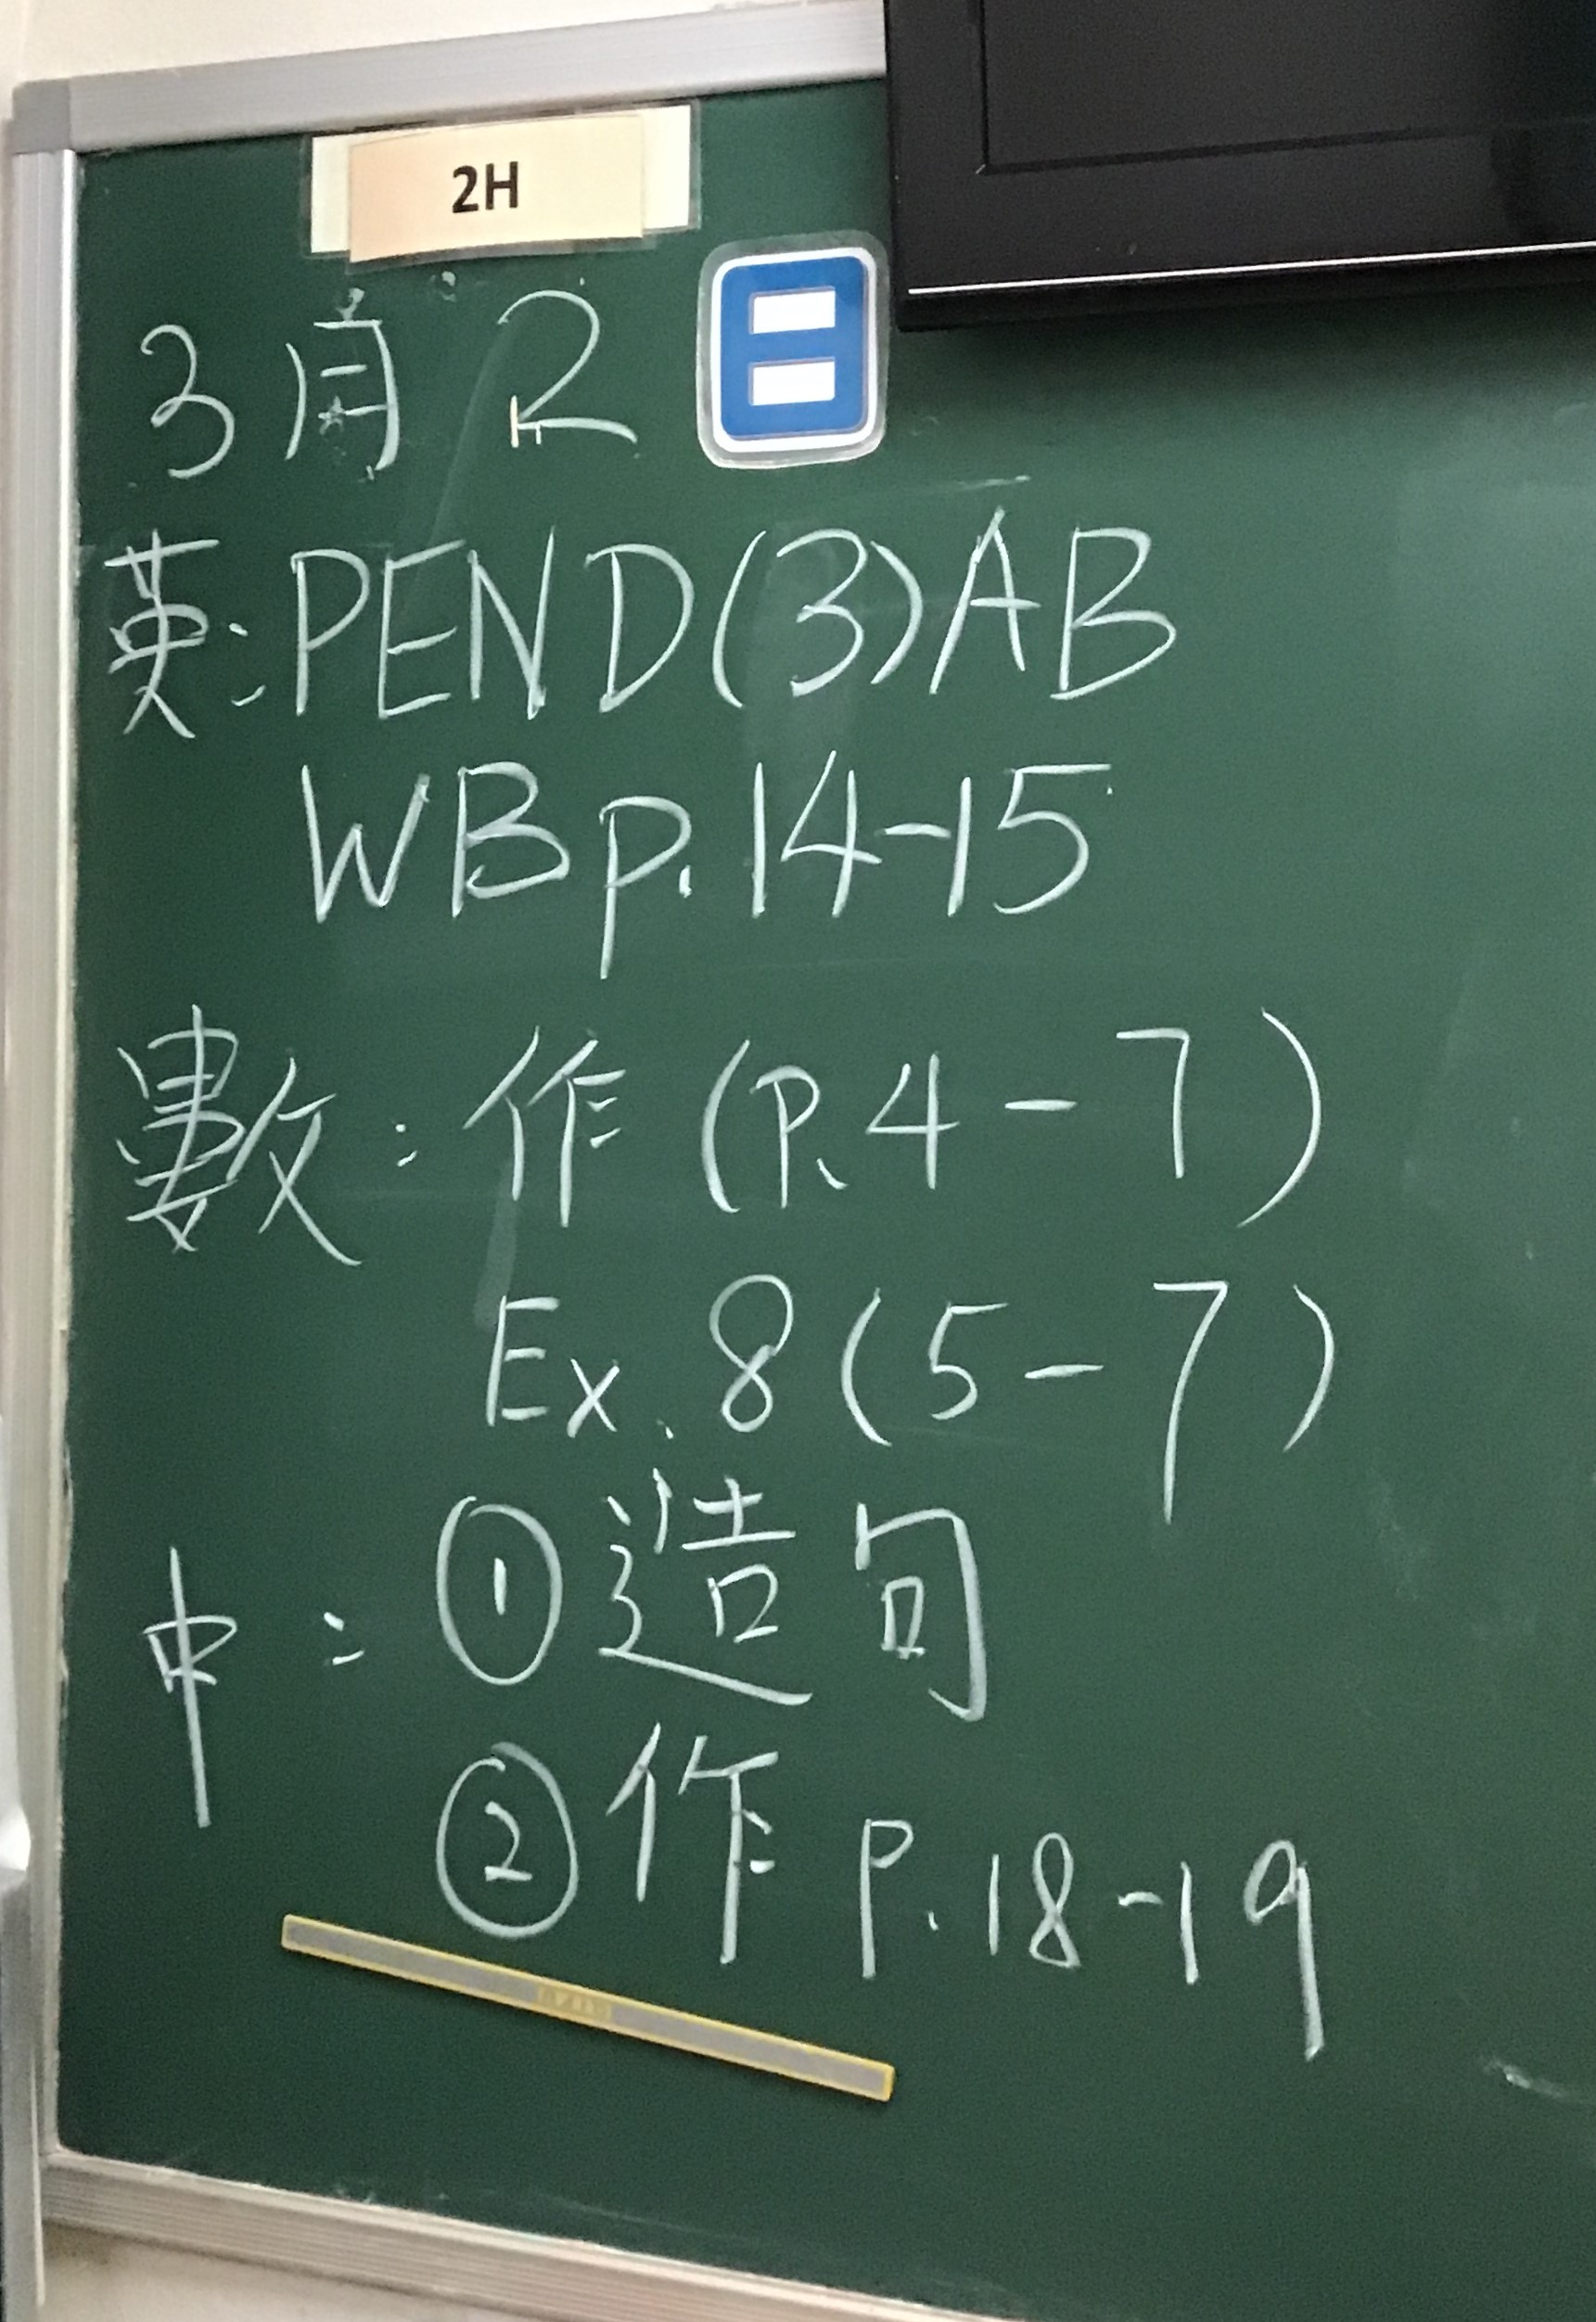 2H
3月2日
英:PEND(3)AB
WB p.14-15
數:作(P.4-7)
Ex.8(5-7)
中:①造句
②作 P.18-19